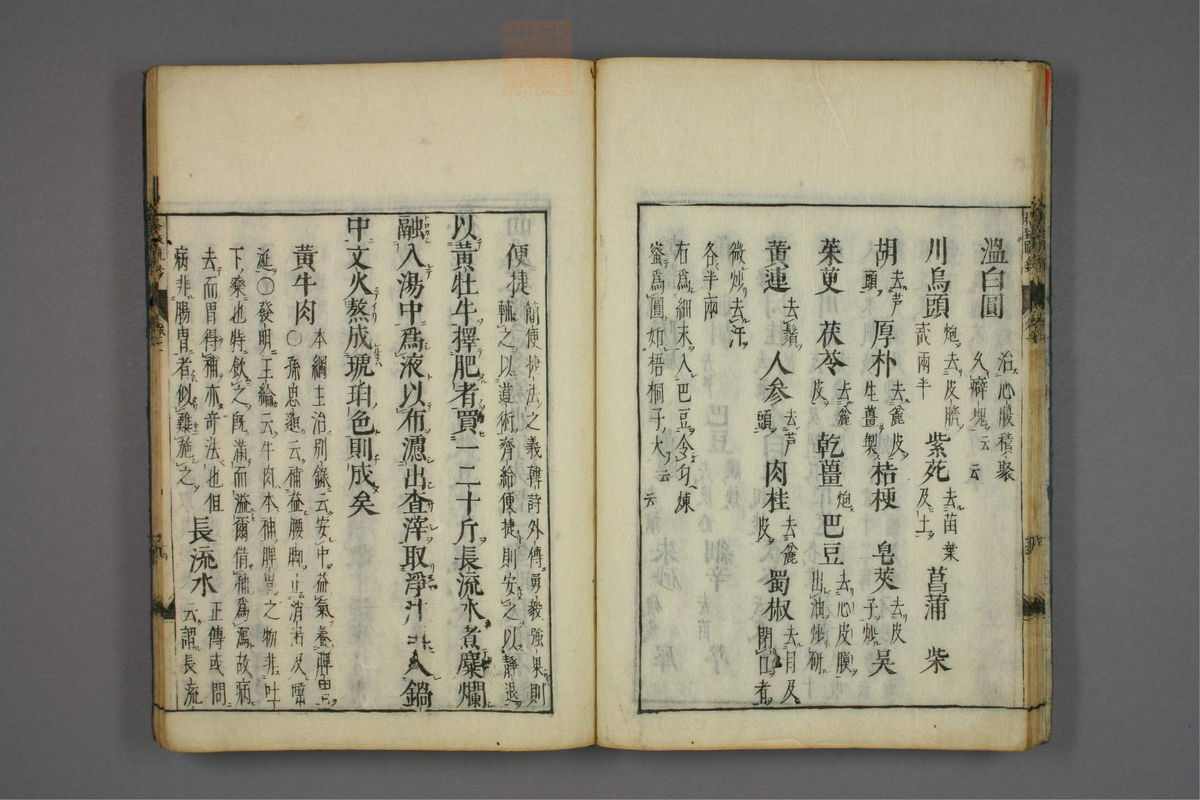 溫白圓 治心腹積聚
久癖塊云云
川烏頭 炮去皮臍貳兩半 紫苑 去苗葉及土 菖蒲 柴
胡 去芦頭 厚朴 去麄皮生薑製 桔梗 皂莢 去皮子炒 吳
茱萸 茯苓 去麄皮 乾薑 炮 巴豆 去心皮膜出油炒研
黃連 去鬚 人參 去芦頭 肉桂 去麄皮 蜀椒 去目及閉口者
微炒去汗
各半兩
右為細末入巴豆令匀煉
蜜為圓如梧桐子大云云
便捷 簡便捷法之義韓詩外傳勇毅強果則
輔之以道術齊給便捷則安之以靜退
以黃牡牛擇肥者買一二十斤長流水煮糜爛
融入湯中爲液以布濾出查滓取淨汁再入鍋
中文火熬成琥珀色則成矣
黃牛肉 本綱主治別錄云安中益氣養脾胃
〇孫思邈云補益腰脚止消渴及唾
涎〇發明王綸云牛肉本補脾胃之物非吐
下藥也特飲之既滿而溢爾借補為瀉故病
去而胃得補亦奇法也但 長流水 正傳或問
病非腸胃者似難施之 云謂長流